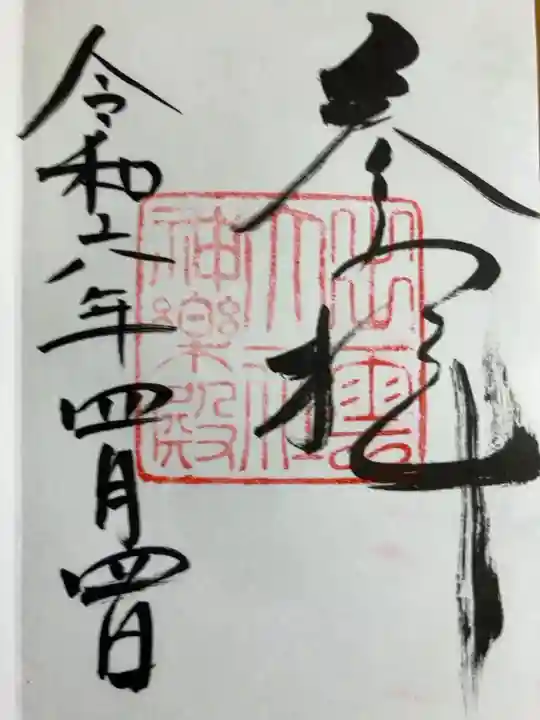 参拝
出雲
大社
神楽殿
令和六年四月四日